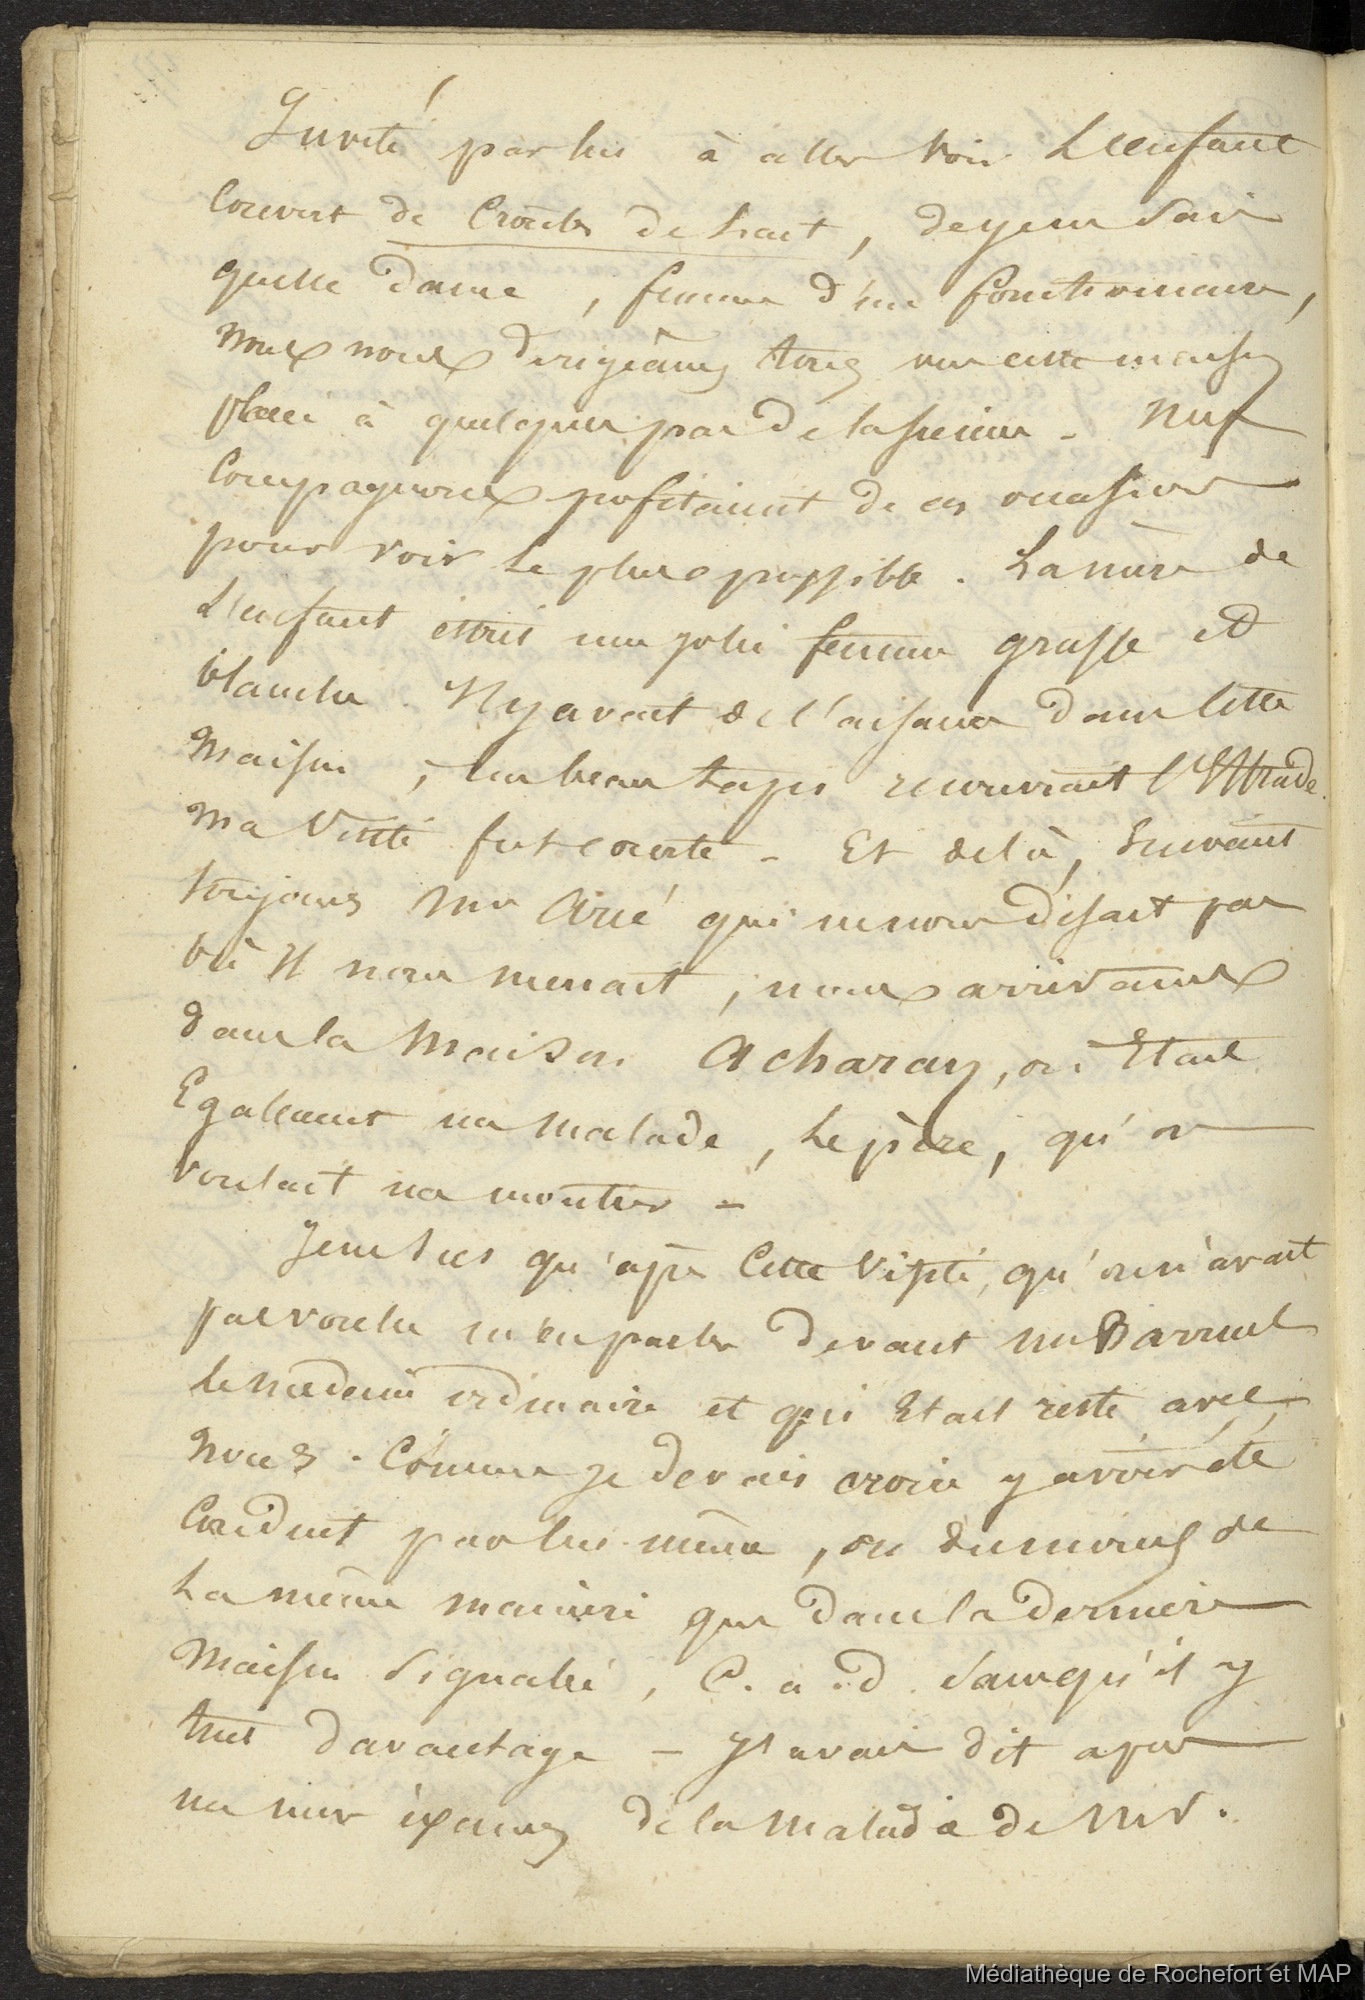 Invité par lui à aller voir L'enfant
Couvert de Croutes de Lait, de je ne sais
quelle dame, femme d'un fonctionnaire,
nous nous dirigeâmes tous vers cette maison
placée à quelques pas de la sienne - Mes
Compagnons profitaient de ces occasions
pour voir le plus possible. La mère de
L'enfant était une jolie femme grasse et
blanche. Il y avait de l'aisance dans cette
maison, un beau tapis recouvrait l'Estrade.
Ma visite fut courte - Et de là, Suivant
toujours Mr Aïné qui ne nous disait pas
où Il nous menait, nous arrivames
dans la Maison Acharay, où Etait
Egalement un malade, Le père, qu'on
voulait me montrer -
Je ne sus qu'après Cette visite, qu'on n'avait
pas voulu m'en parler devant Mr Barruel
le médecin ordinaire et qui Etait resté avec
nous. Comme je devais croire y avoir été
Conduit par lui-même, ou du moins de
La même manière que dans la dernière
maison signalée, C. a. d. Sans qu'il y
tint davantage - J'avais dit après
un mur examen de la maladie de Mr.
Médiathèque de Rochefort et MAP